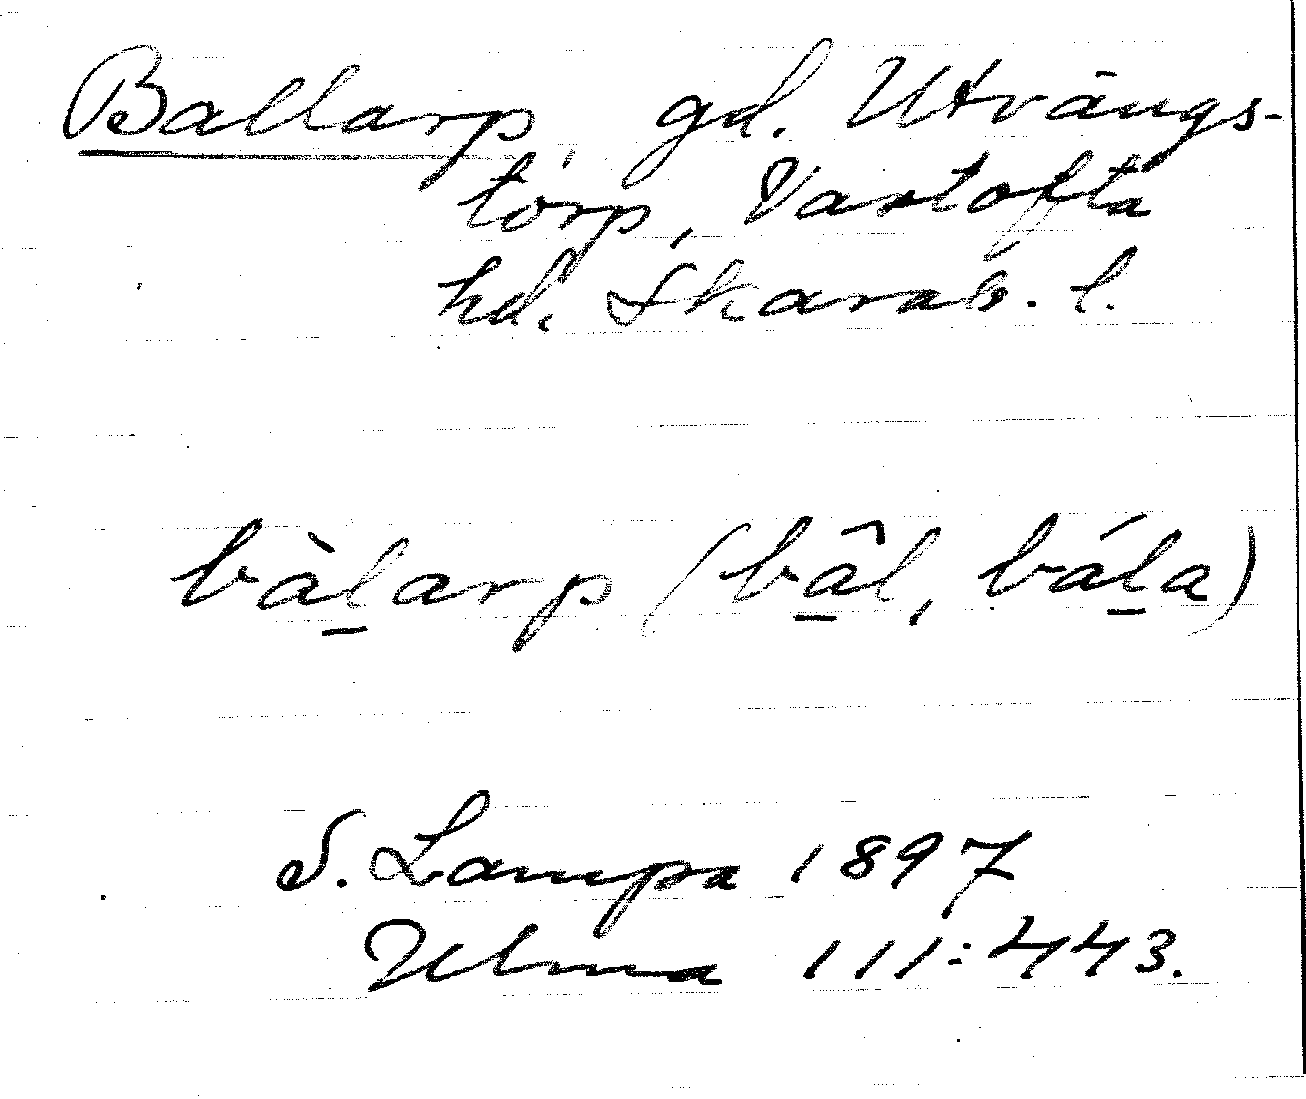 Ballarp, gd. Utvängs-
torp, Vartofta
hd. Skarab. l.
bàl̲arp (bâ̲l, bál̲a)
S. Lampa 1897
Ulma 111:443.